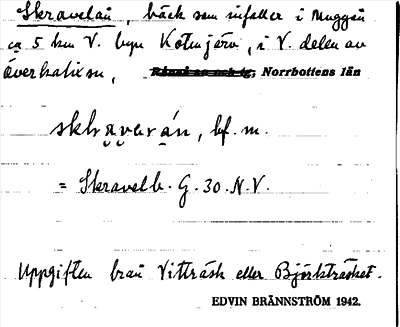 Skravelån, bäck som infaller i Muggån
ca 5 km V. byn Kotmjärv, i V. delen av
Överkalix sn, Råneå sn och tg, Norrbottens län
skravarán, bf. m.
= Skravelb. G. 30. N.V.
Uppgiften från Vitträsk eller Björkträsket.
EDVIN BRÄNNSTRÖM 1942.